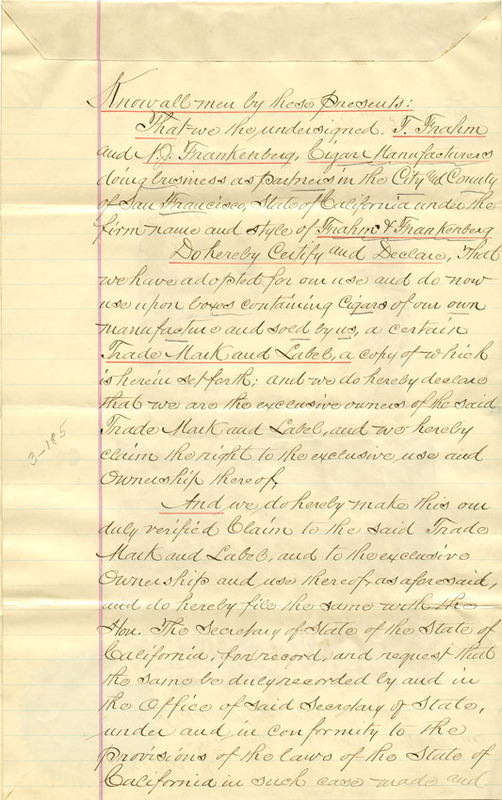 Know all men by these presents:
That we the undersigned, T. Frahm
and N.J. Frankenberg, Cigar Manufacturers
doing business as partners in the City and County
of San Francisco, State of California under the
firm name and style of Frahm & Frankenberg
Do hereby Certify and Declare, That
we have adopted for our use and do now
use upon boxes containing Cigars of our own
manufacture and sold by us, a certain
Trade Mark and Label, a copy of which
is herein set forth; and we do hereby declare
that we are the exclusive owners of the said
Trade Mark and Label, and we hereby
claim the right to the exclusive use and
Ownership thereof,
And we do hereby make this our
duly verified Claim to the said Trade
Mark and Label, and to the exclusive
Ownership and use thereof, as afore said,
and do hereby file the same with the
Hon. The Secretary of State of the State of
California, for record, and request that
the same be duly recorded by and in
the Office of said Secretary of State,
under and in conformity to the
provisions of the laws of the State of
California in such case made and
3-185